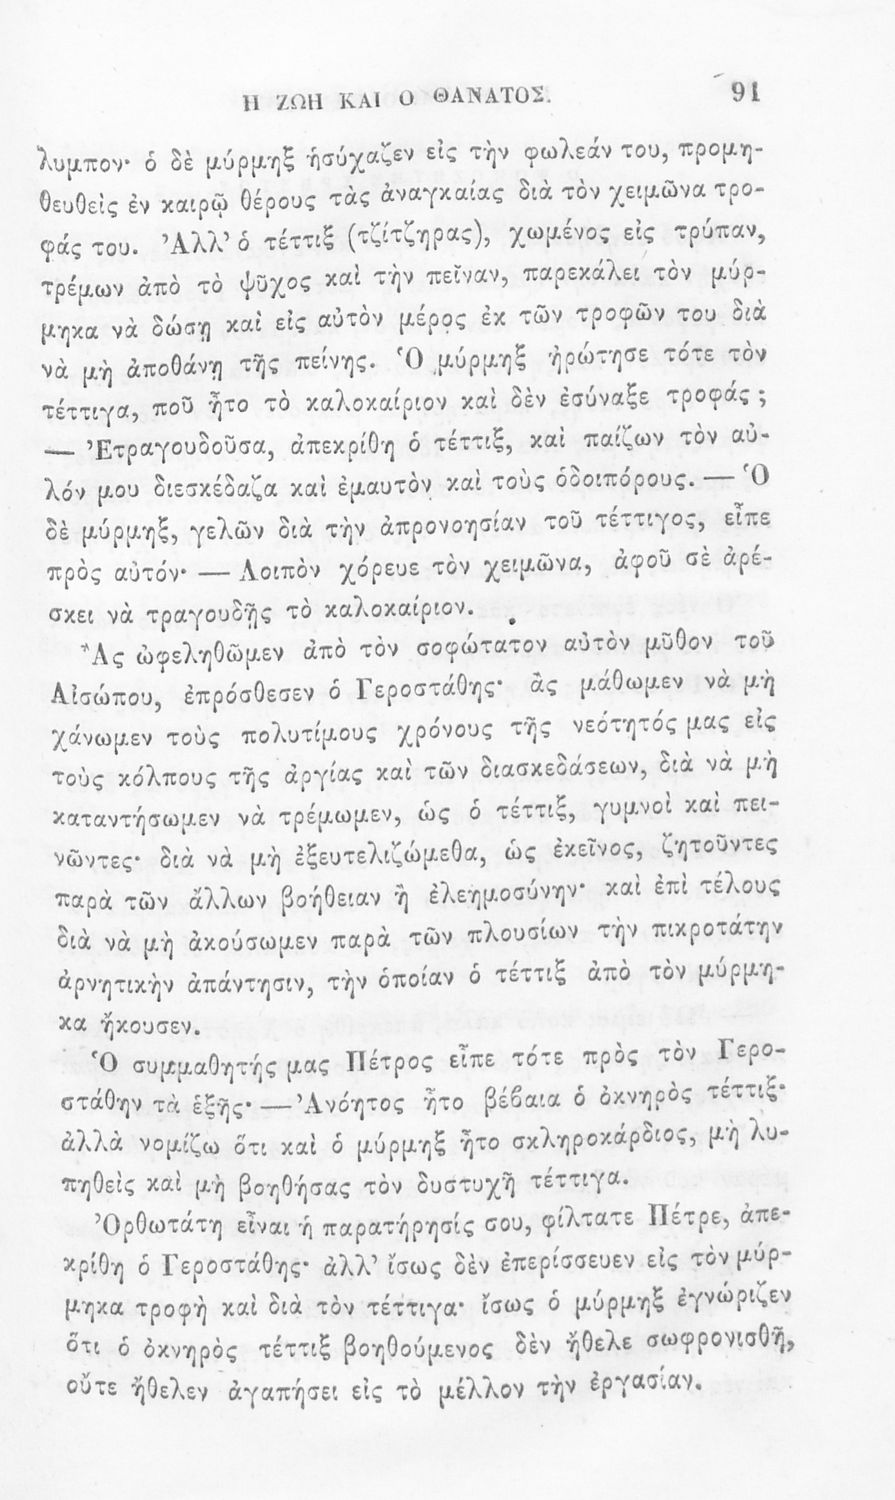 Η ΖΩΗ ΚΑΙ Ο ΘΑΝΑΤΟΣ. 91
λυμπον· ὁ δὲ μύρμηξ ἡσύχαζεν εἰς τὴν φωλεάν του, προμη-
θευθεὶς ἐν καιρῷ θέρους τὰς ἀναγκαίας διὰ τὸν χειμῶνα τρο-
φάς του. Ἀλλ’ ὁ τέττιξ (τζίτζηρας), χωμένος εἰς τρύπαν,
τρέμων ἀπὸ τὸ ψῦχος καὶ τὴν πεῖναν, παρεκάλει τὸν μύρ-
μηκα νὰ δώσῃ καὶ εἰς αὐτὸν μέρος ἐκ τῶν τροφῶν του διὰ
νὰ μὴ ἀποθάνῃ τῆς πείνης. Ὁ μύρμηξ ἠρώτησε τότε τὸν
τέττιγα, ποῦ ἦτο τὸ καλοκαίριον καὶ δὲν ἐσύναξε τροφάς ;
— Ἐτραγουδοῦσα, ἀπεκρίθη ὁ τέττιξ, καὶ παίζων τὸν αὐ-
λόν μου διεσκέδαζα καὶ ἐμαυτὸν καὶ τοὺς ὁδοιπόρους. — Ὁ
δὲ μύρμηξ, γελῶν διὰ τὴν ἀπρονοησίαν τοῦ τέττιγος, εἶπε
πρὸς αὐτόν· — Λοιπὸν χόρευε τὸν χειμῶνα, ἀφοῦ σὲ ἀρέ-
σκει νὰ τραγουδῇς τὸ καλοκαίριον.
Ἂς ὠφεληθῶμεν ἀπὸ τὸν σοφώτατον αὐτὸν μῦθον τοῦ
Αἰσώπου, ἐπρόσθεσεν ὁ Γεροστάθης· ἂς μάθωμεν νὰ μὴ
χάνωμεν τοὺς πολυτίμους χρόνους τῆς νεότητός μας εἰς
τοὺς κόλπους τῆς ἀργίας καὶ τῶν διασκεδάσεων, διὰ νὰ μὴ
καταντήσωμεν νὰ τρέμωμεν, ὡς ὁ τέττιξ, γυμνοὶ καὶ πει-
νῶντες· διὰ νὰ μὴ ἐξευτελιζώμεθα, ὡς ἐκεῖνος, ζητοῦντες
παρὰ τῶν ἄλλων βοήθειαν ἢ ἐλεημοσύνην· καὶ ἐπὶ τέλους
διὰ νὰ μὴ ἀκούσωμεν παρὰ τῶν πλουσίων τὴν πικροτάτην
ἀρνητικὴν ἀπάντησιν, τὴν ὁποίαν ὁ τέττιξ ἀπὸ τὸν μύρμη-
κα ἤκουσεν.
Ὁ συμμαθητής μας Πέτρος εἶπε τότε πρὸς τὸν Γερο-
στάθην τὰ ἑξῆς· — Ἀνόητος ἦτο βέβαια ὁ ὀκνηρὸς τέττιξ·
ἀλλὰ νομίζω ὅτι καὶ ὁ μύρμηξ ἦτο σκληροκάρδιος, μὴ λυ-
πηθεὶς καὶ μὴ βοηθήσας τὸν δυστυχῆ τέττιγα.
Ὀρθωτάτη εἶναι ἡ παρατήρησίς σου, φίλτατε Πέτρε, ἀπε-
κρίθη ὁ Γεροστάθης· ἀλλ’ ἴσως δὲν ἐπερίσσευεν εἰς τὸν μύρ-
μηκα τροφὴ καὶ διὰ τὸν τέττιγα· ἴσως ὁ μύρμηξ ἐγνώριζεν
ὅτι ὁ ὀκνηρὸς τέττιξ βοηθούμενος δὲν ἤθελε σωφρονισθῆ,
οὔτε ἤθελεν ἀγαπήσει εἰς τὸ μέλλον τὴν ἐργασίαν.